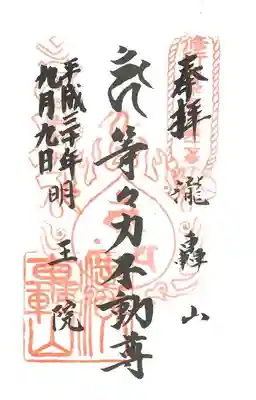 奉拝
瀧轟山
等々力不動尊
平成二十年
九月九日
明王院